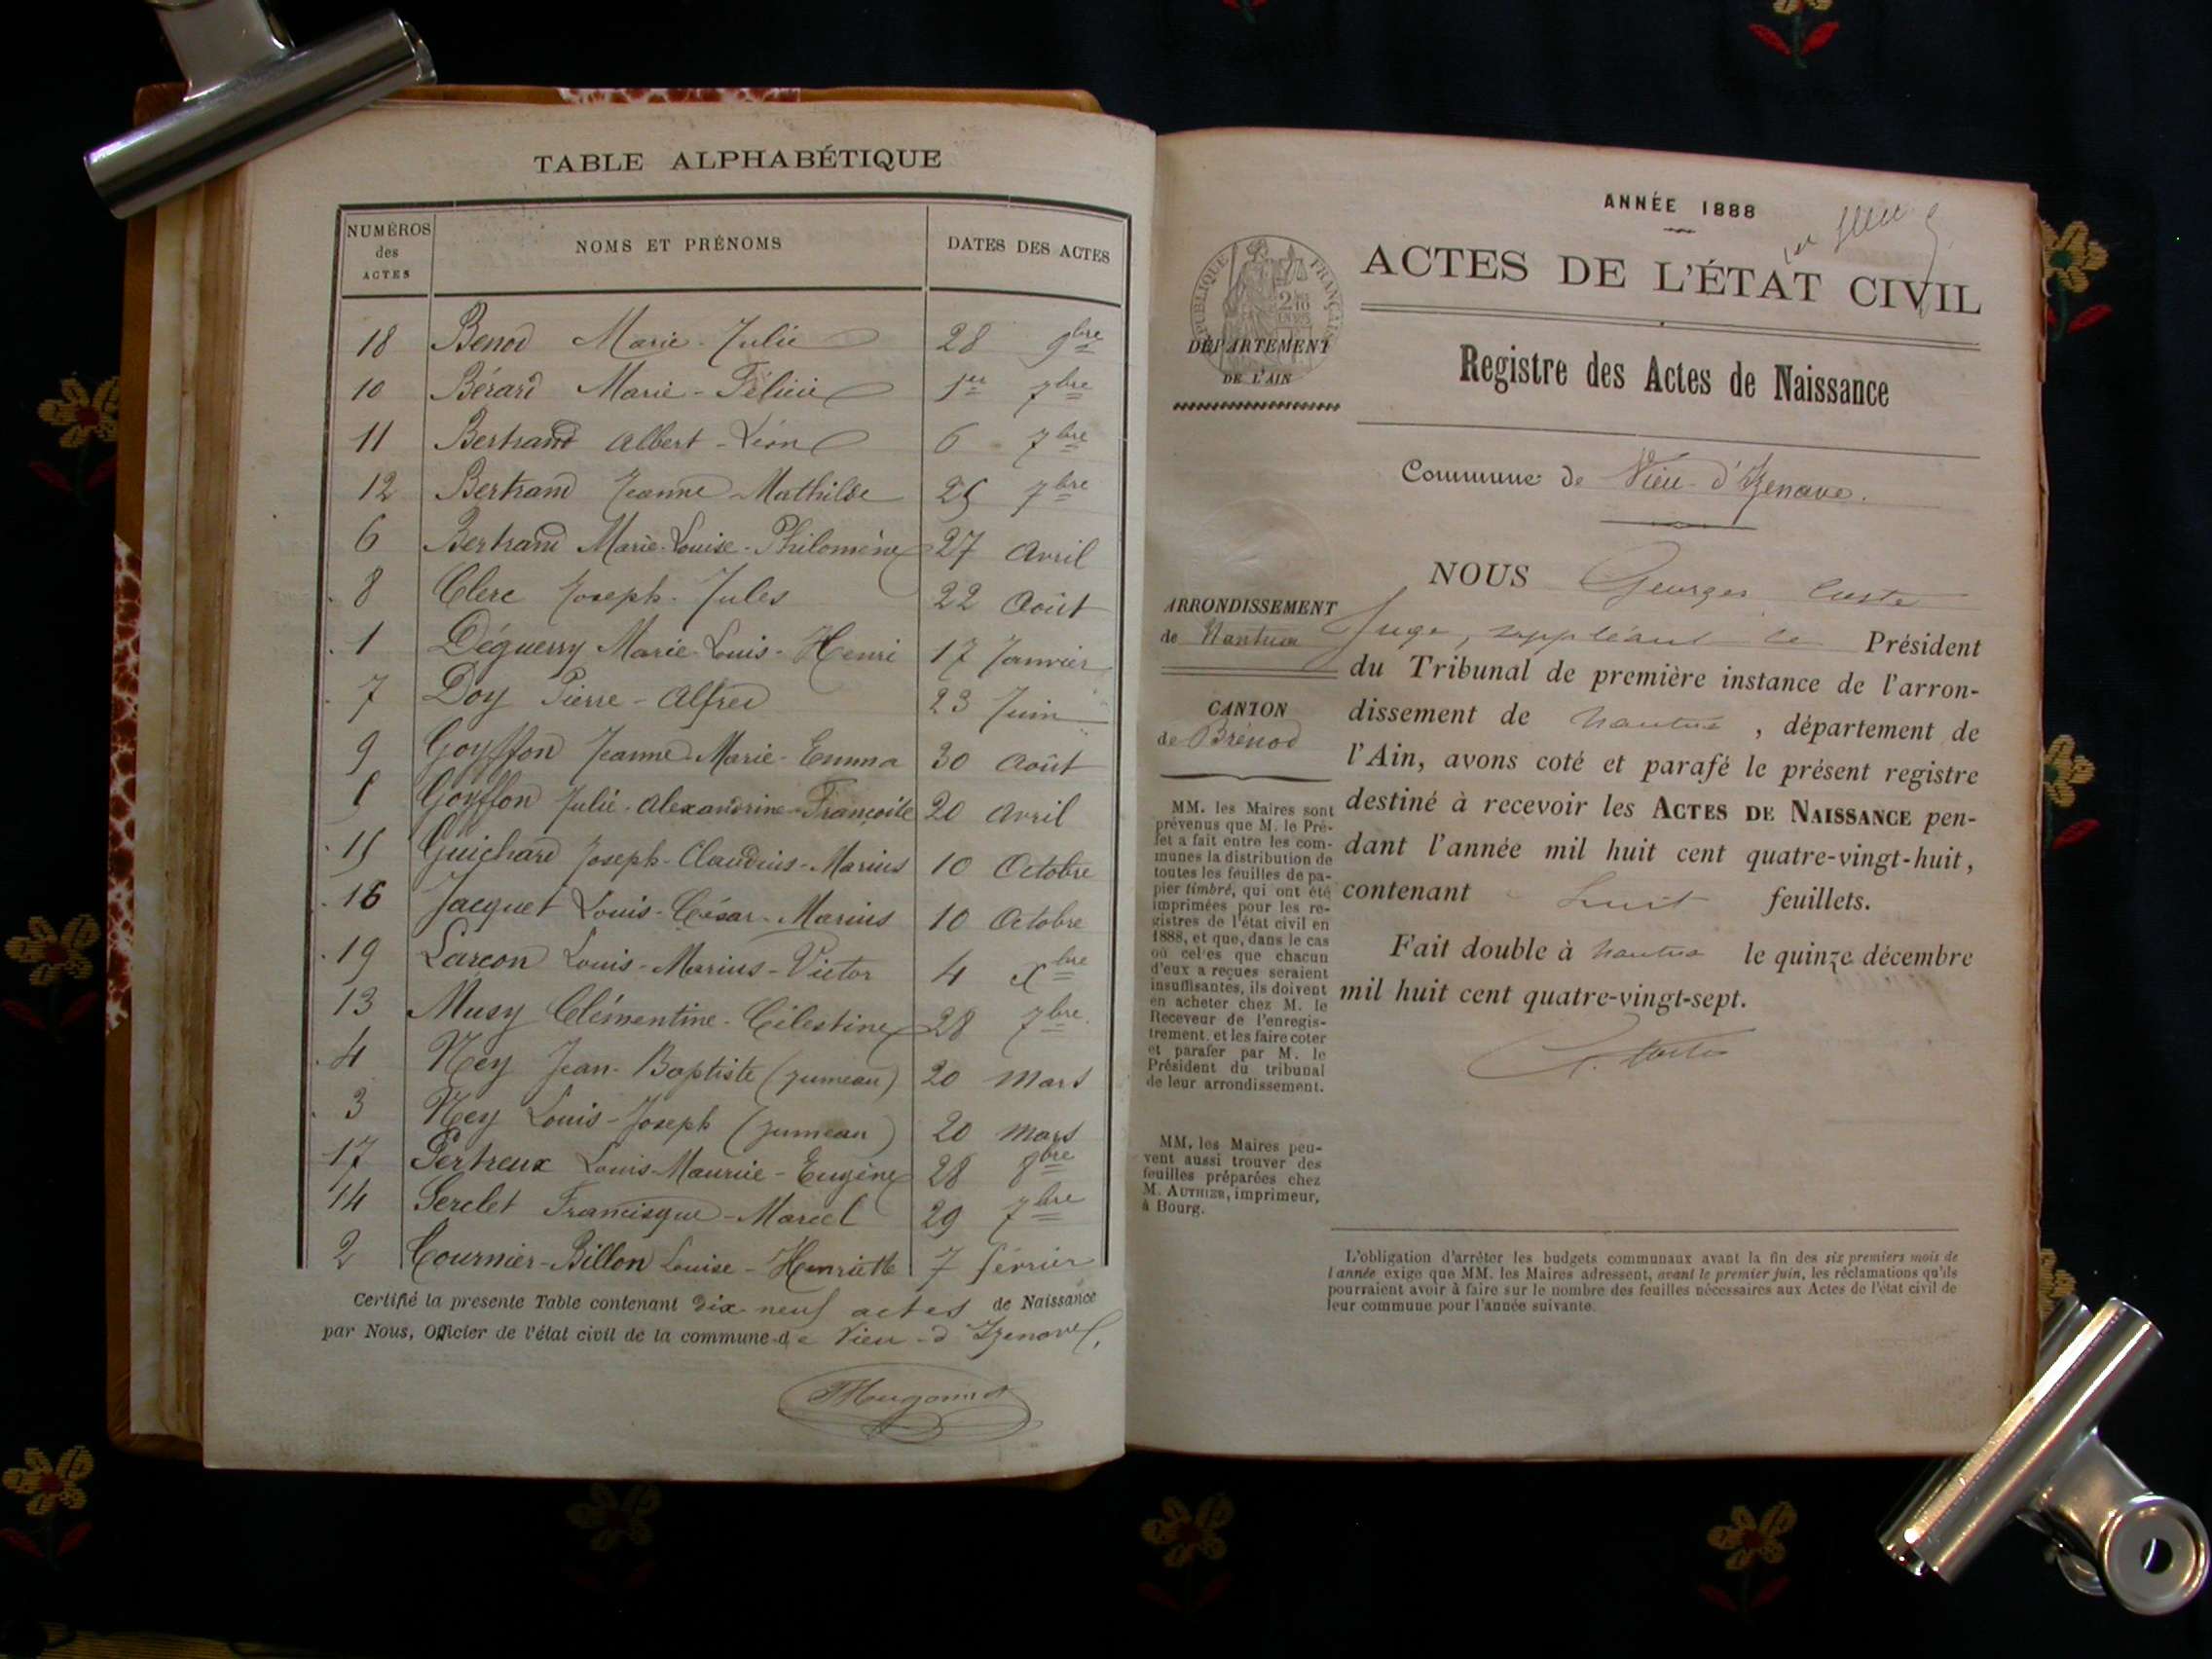 TABLE ALPHABÉTIQUE
NUMÉROS des ACTES NOMS ET PRÉNOMS DATES DES ACTES
18 Benod Marie-Julie 28 9bre
10 Bérard Marie-Félicie 1er 7bre
11 Bertrand Albert-Léon 6 7bre
12 Bertrand Jeanne-Mathilde 25 7bre
6 Bertrand Marie-Louise-Philomène 27 Avril
8 Clerc Joseph-Jules 22 Août
1 Déguerry Marie-Louis-Henri 17 Janvier
7 Doy Pierre-Alfred 23 Juin
9 Goyffon Jeanne-Marie-Emma 30 Août
5 Goyffon Julie-Alexandrine-Françoise 20 Avril
15 Guichard Joseph-Claudius-Marius 10 Octobre
16 Jacquet Louis-César-Marius 10 Octobre
19 Larçon Louis-Marius-Victor 4 Xbre
13 Musy Clémentine-Célestine 28 7bre
4 Ney Jean-Baptiste (jumeau) 20 Mars
3 Ney Louis-Joseph (jumeau) 20 Mars
17 Pertreux Louis-Maurice-Eugène 28 8bre
14 Serclet Francisque-Marcel 29 7bre
2 Tournier-Billon Louise-Henriette 7 février
Certifié la presente Table contenant dix-neuf actes de Naissance
par Nous, Officier de l'état civil de la commune de Vieu-d'Izenave,
Hugonnet
ANNÉE 1888
ACTES DE L'ÉTAT CIVIL
RÉPUBLIQUE FRANÇAISE
DÉPARTEMENT
DE L'AIN
Registre des Actes de Naissance
Commune de Vieu-d'Izenave.
ARRONDISSEMENT
de Nantua
CANTON
de Brénod
MM. les Maires sont
prévenus que M. le Pré-
fet a fait entre les com-
munes la distribution de
toutes les feuilles de pa-
pier timbré, qui ont été
imprimées pour les re-
gistres de l'état civil en
1888, et que, dans le cas
où celles que chacun
d'eux a reçues seraient
insuffisantes, ils doivent
en acheter chez M. le
Receveur de l'enregis-
trement, et les faire coter
et parafer par M. le
Président du tribunal
de leur arrondissement.
MM. les Maires peu-
vent aussi trouver des
feuilles préparées chez
M. AUTHIER, imprimeur,
à Bourg.
NOUS Georges Coste
Juge, suppléant le Président
du Tribunal de première instance de l'arron-
dissement de Nantua, département de
l'Ain, avons coté et parafé le présent registre
destiné à recevoir les ACTES DE NAISSANCE pen-
dant l'année mil huit cent quatre-vingt-huit,
contenant huit feuillets.
Fait double à Nantua le quinze décembre
mil huit cent quatre-vingt-sept.
G. Coste
L'obligation d'arrêter les budgets communaux avant la fin des six premiers mois de
l'année exige que MM. les Maires adressent, avant le premier juin, les réclamations qu'ils
pourraient avoir à faire sur le nombre des feuilles nécessaires aux Actes de l'état civil de
leur commune pour l'année suivante.